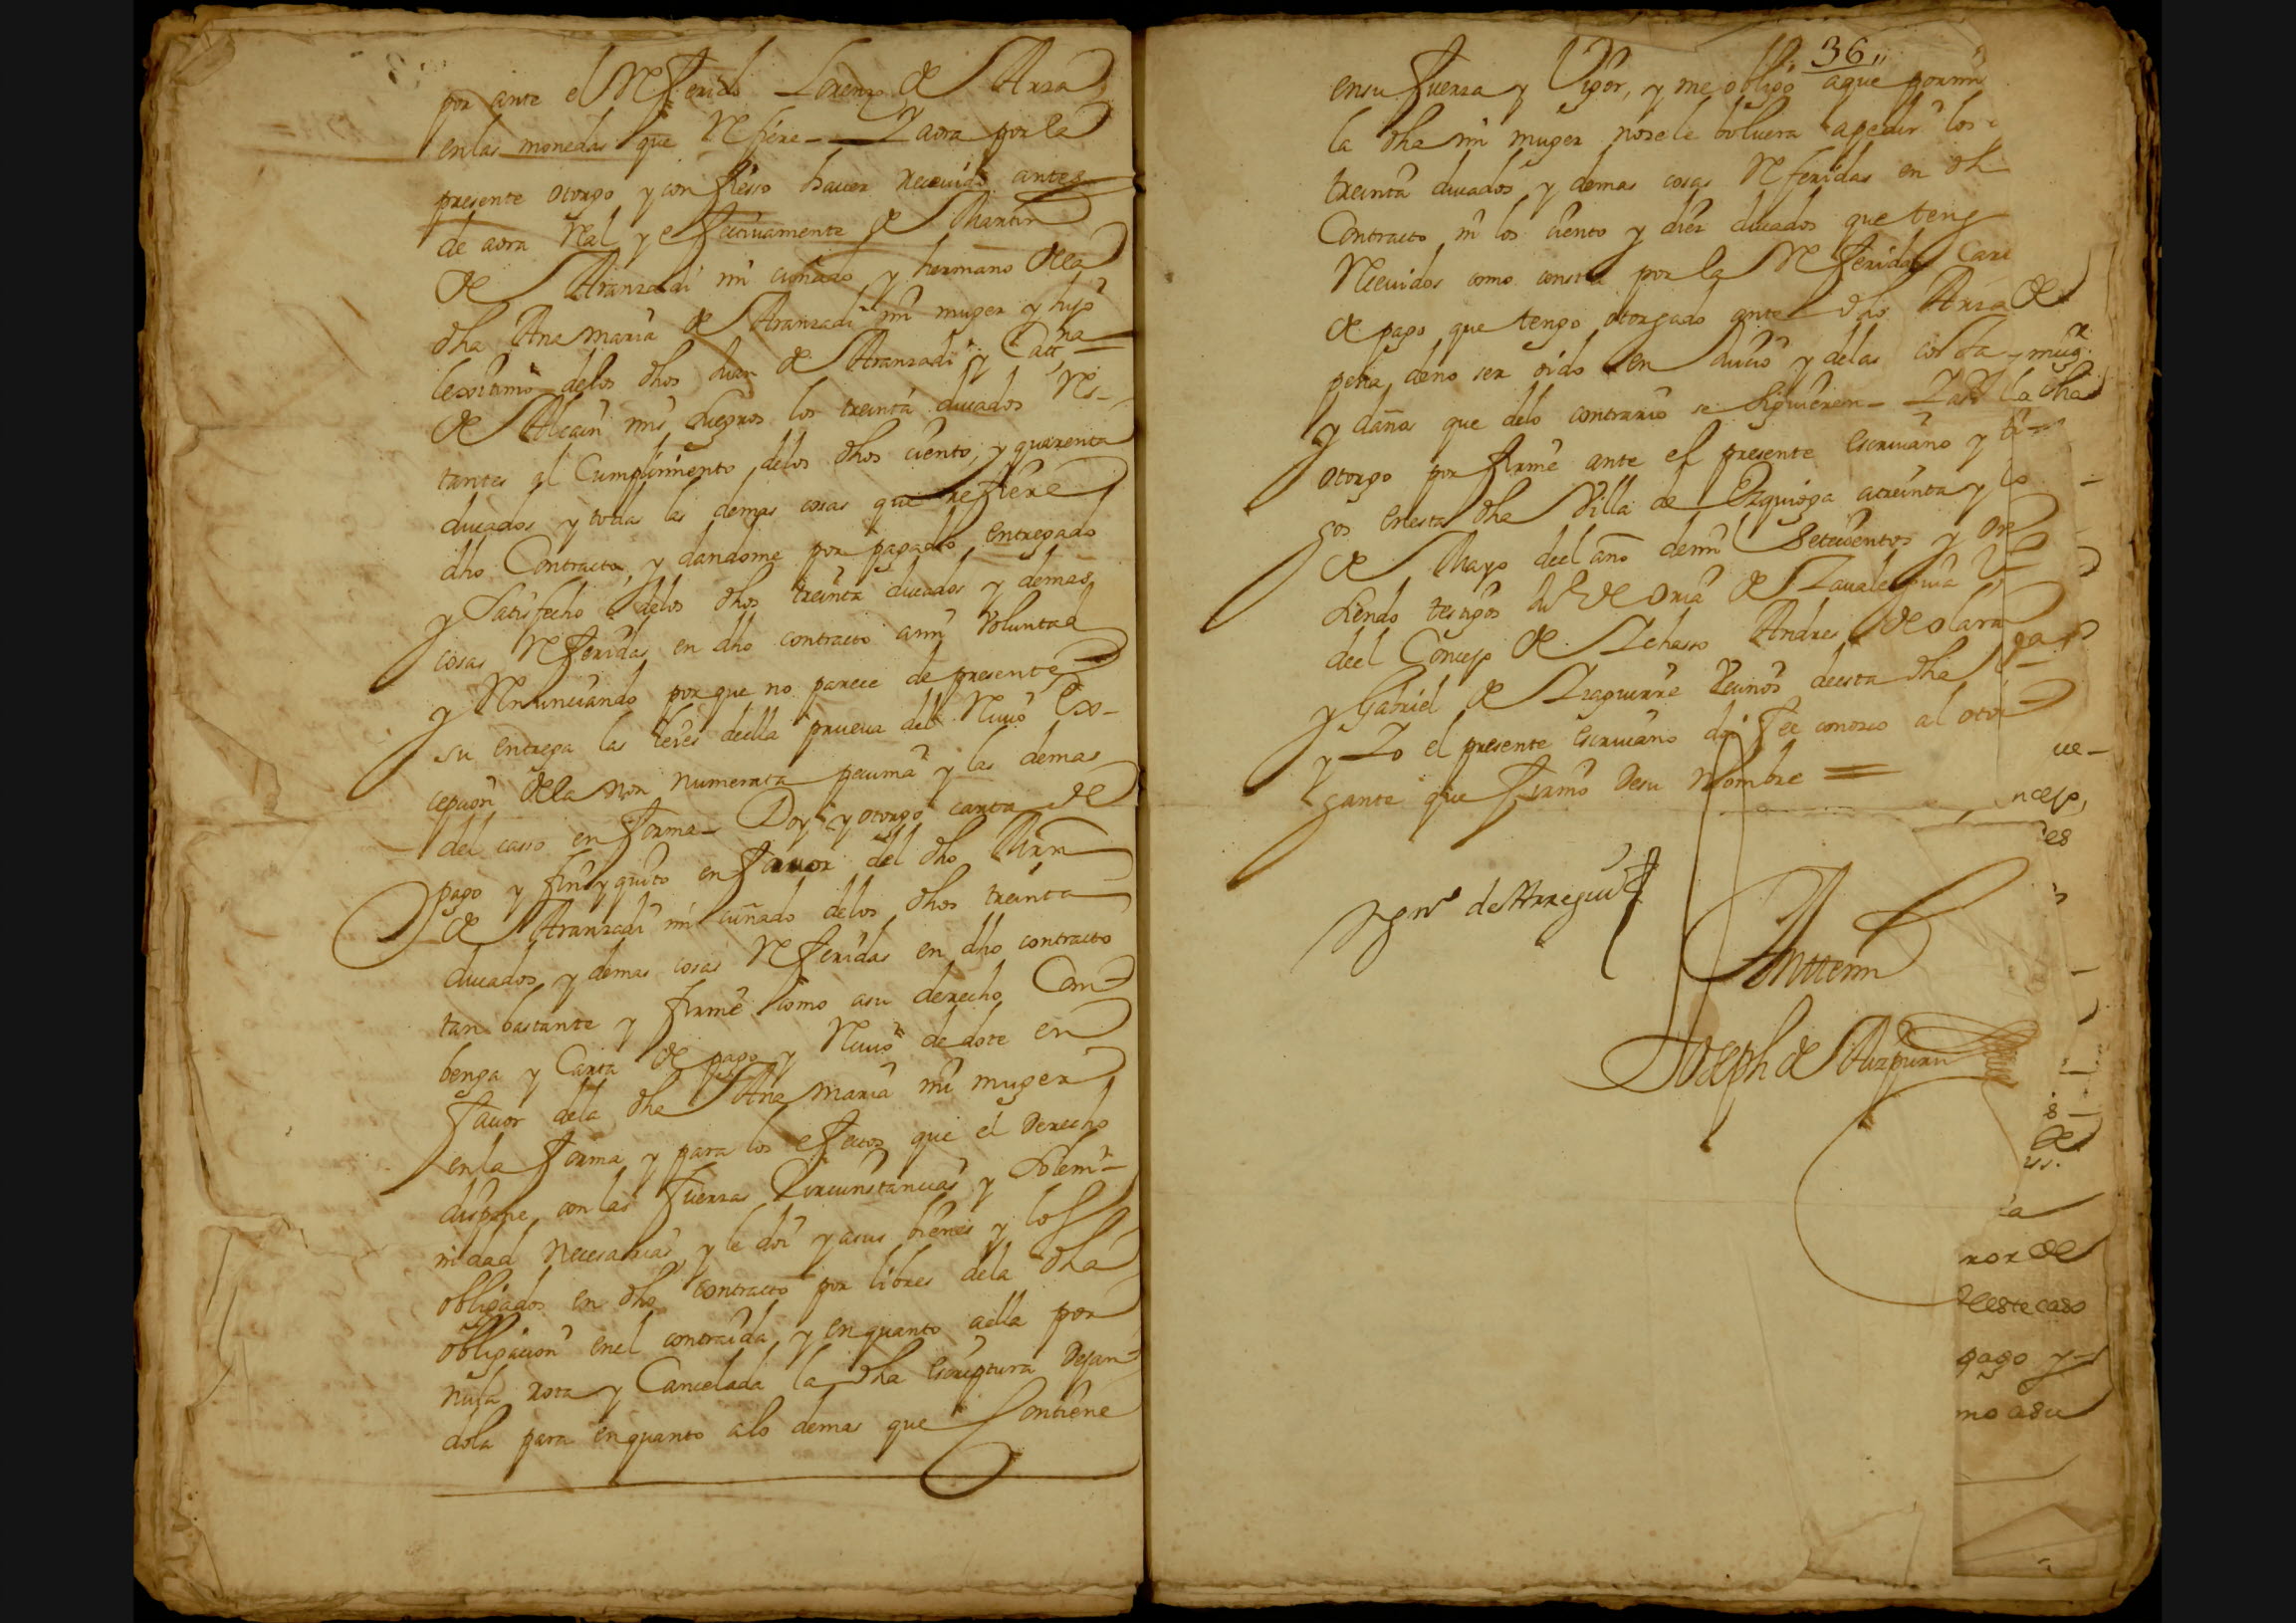 por ante el Referido Lorenzo de Arza
en las monedas que Refiere — Y aora por la
presente otorgo y confiesso hauer receuido antes
de aora Real y efectiuamente de Martin
de Aranzadi mi cuñado y hermano de la
dha Ana maria de Aranzadi mi muger y hijo
lexitimo de los dhos Juan de Aranzadi y Catt.na
de Alcain mis suegros los treinta ducados Res-
tantes al Cumplimiento de los dhos ciento, y quarenta
ducados y todas las demas cosas que refiere
dho Contracto, y dandome por pagado, entregado
y Satisfecho de los dhos treinta ducados y demas
cosas Referidas en dho contracto a mi Voluntad
y Renunciando por que no parece de presente
su entrega las leyes de ella prueua del Reciuo Ex-
cepcion de la non numerata pecunia y las demas
del casso en forma — Doy y otorgo carta de
pago y finiquito en fauor del dho Mrn
de Aranzadi mi cuñado de los dhos treinta
ducados, y demas cosas Referidas en dho contracto
tan bastante y firme como a su derecho Com-
benga y Carta de pago y Reciuo de dote en
fauor de la dha Ana maria mi muger
en la forma y para los efectos que el Derecho
dispone, con las fuerzas Circunstancias y Solem-
nidad necesarias, y le doi y a sus bienes y los
obligados en dho contracto por libres de la dha
obligacion en el contraida, y en quanto a ella por
nula rota y Cancelada la dha escriptura Dejan-
dola para en quanto a lo demas que Contiene
36
en su fuerza y Vigor, y me obligo a que por mi
la dha mi muger no se le boluera a pedir los
treinta ducados y demas cosas Referidas en dh
Contracto ni los ciento y diez ducados que teng
Receuidos como consta por la Referida Cart
de pago que tengo otorgado ante dho Arza de
pena de no ser oido en Juicio y de las costas
mugr.
y daños que de lo contrario se Siguieren — Y asi la dha
otorgo por firme ante el presente escriuano y
gos en esta dha Villa de Ezquioga a treinta y
de Mayo de el año de mil Setecientos y
siendo testigos de oria de Zaualeguia
de el Concejo de Ichasso Andres de olara
y Gabriel de Izaguirre Vecinos de esta dha
y Yo el presente escriuano doi fee conozco al otor
gante que firmo de su Nombre
ue-
ncejo,
es
de Arregui
Anttemi
Joseph de Aizpuru
de
ia
nor de
de este caso
pago y
mo asu